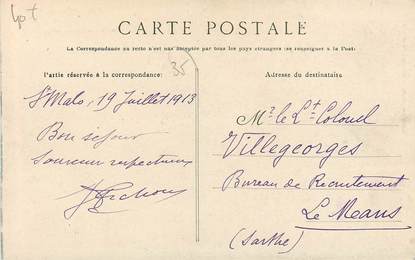 CARTE POSTALE
La Correspondance au recto n'est pas acceptée par tous les pays étrangers (se renseigner à la Poste)
Partie réservée à la correspondance:
Adresse du destinataire
35
St Malo, 19 Juillet 1913
Bon séjour
Souvenir respectueux
Mr le Lt Colonel
Villegeorges
Bureau de Recrutement
Le Mans
(Sarthe)